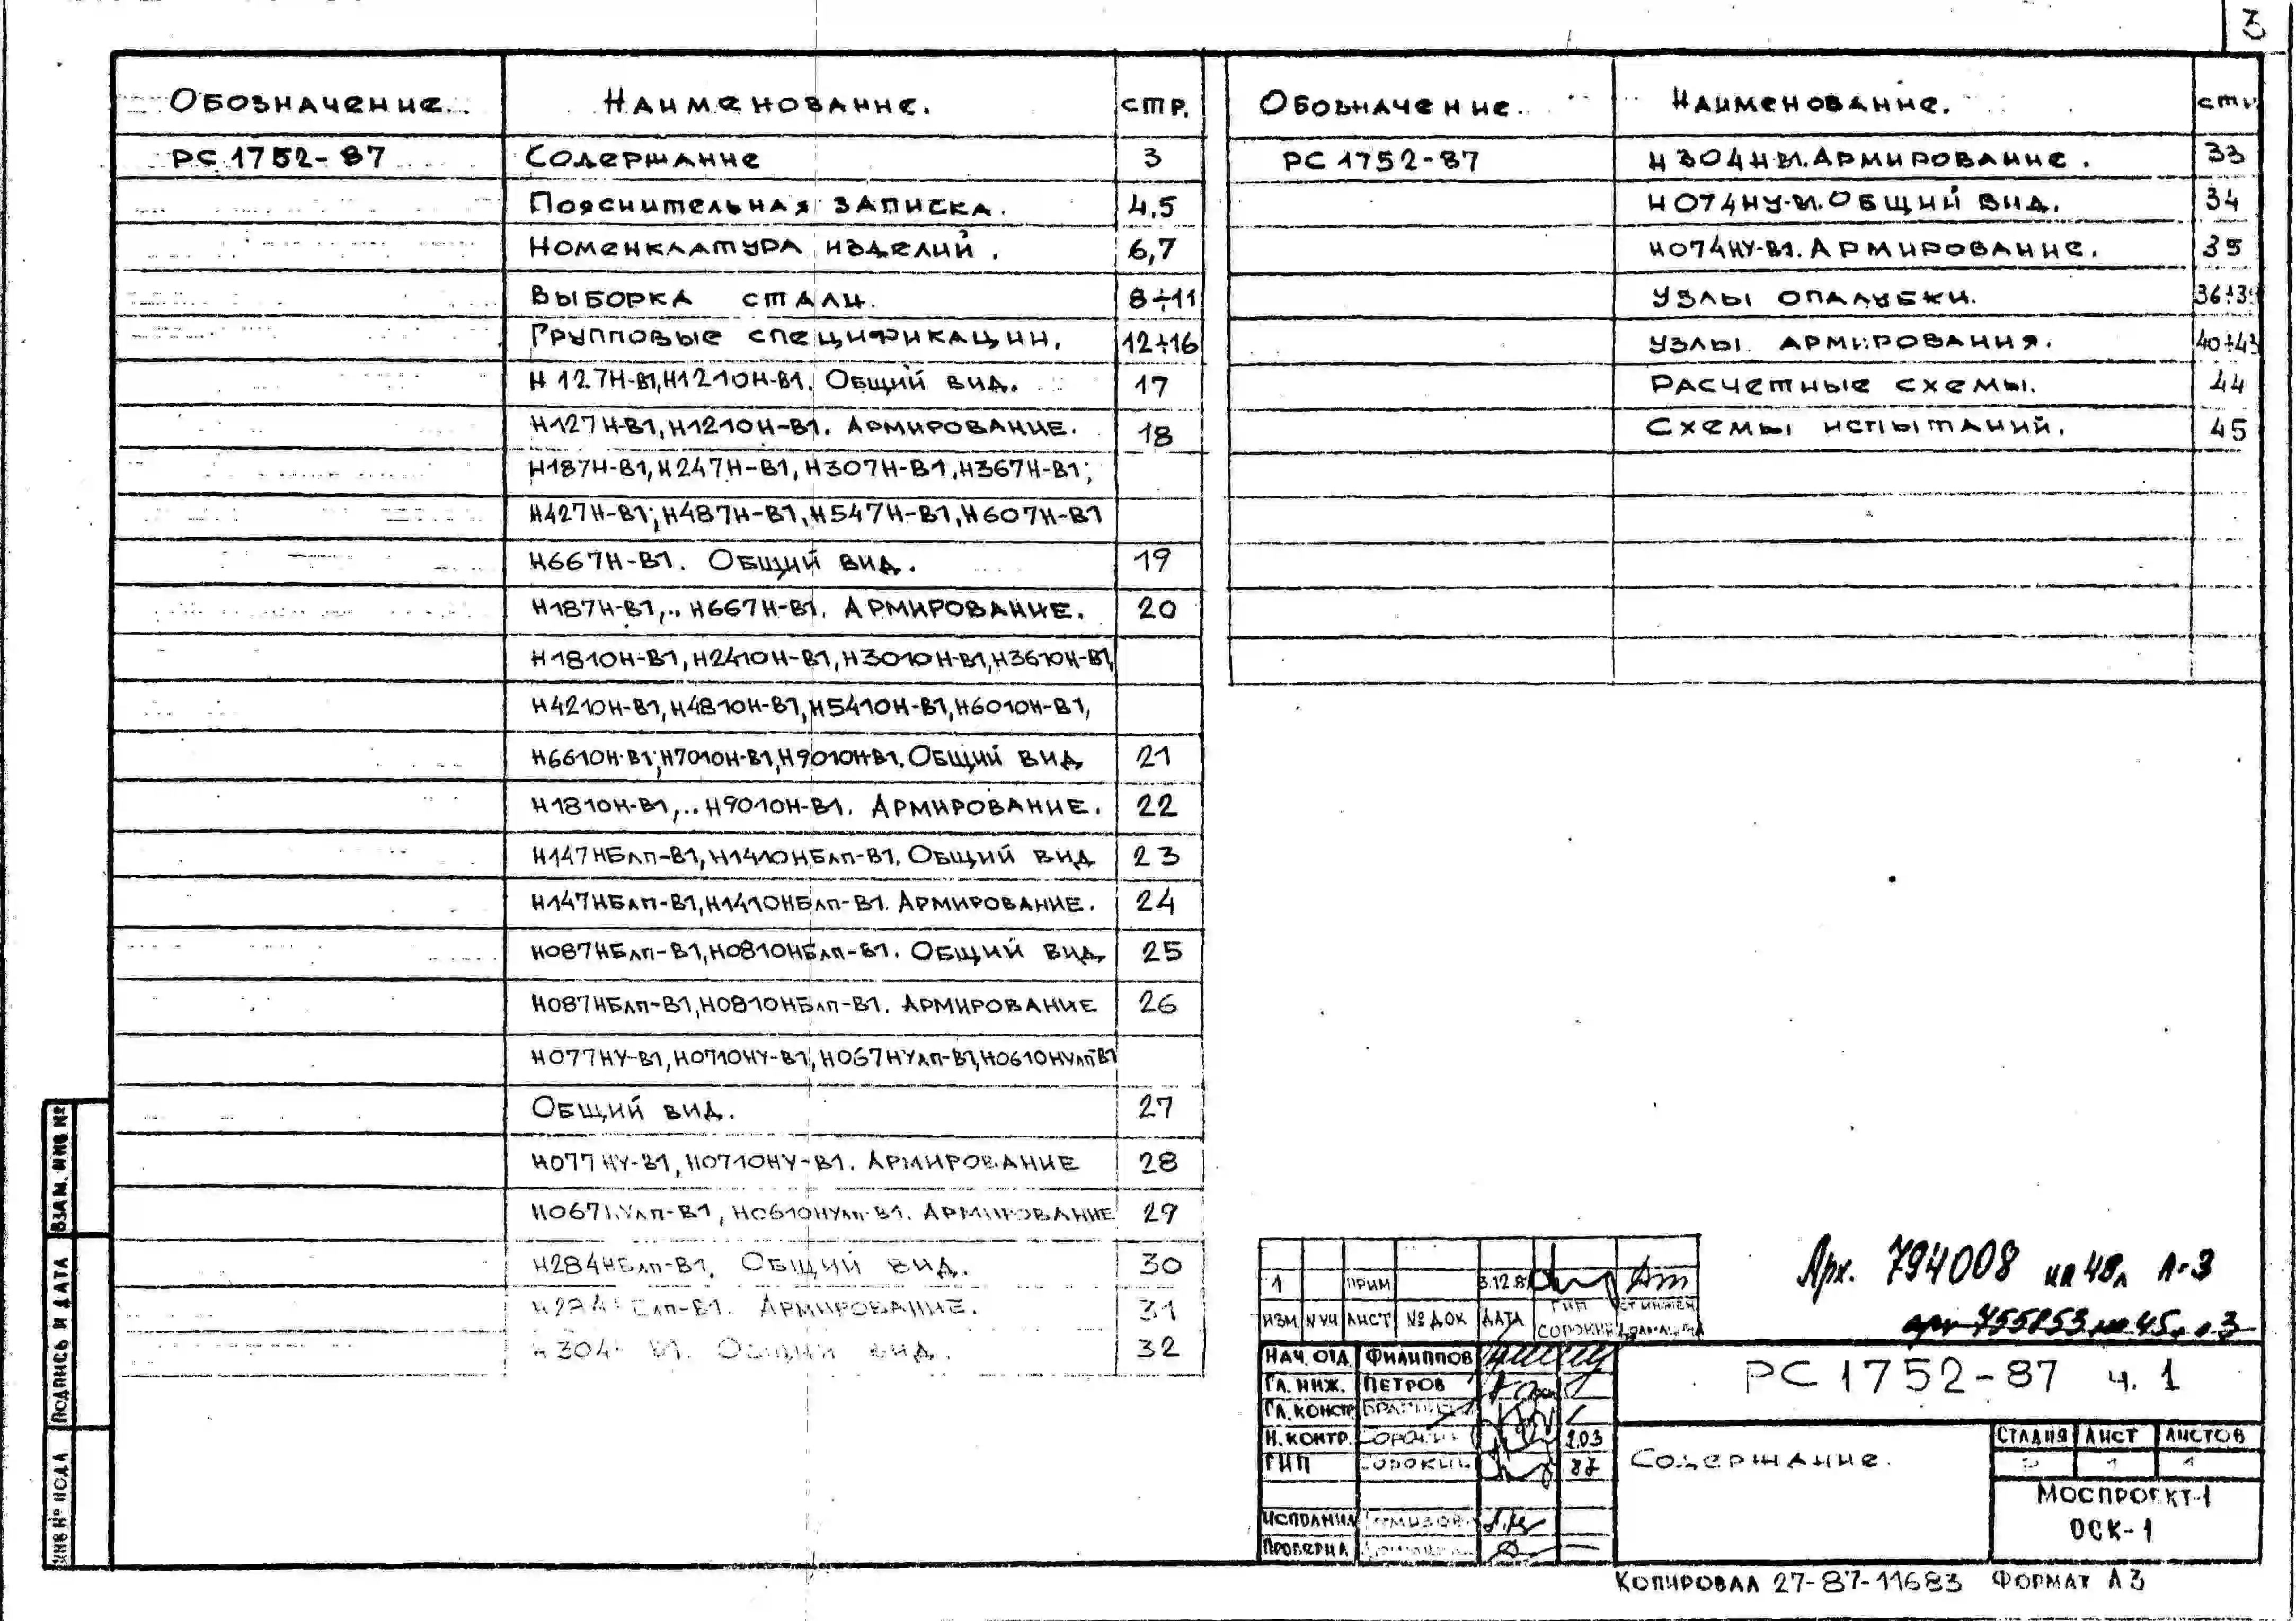 3
Обозначение. Наименование. стр.
РС 1752-87 Содержание 3
Пояснительная записка. 4,5
Номенклатура изделий. 6,7
Выборка стали. 8÷11
Групповые спецификации. 12÷16
Н127Н-В1, Н1210Н-В1. Общий вид. 17
Н127Н-В1, Н1210Н-В1. Армирование. 18
Н187Н-В1, Н247Н-В1, Н307Н-В1, Н367Н-В1;
Н427Н-В1; Н487Н-В1, Н547Н-В1, Н607Н-В1
Н667Н-В1. Общий вид. 19
Н187Н-В1,.. Н667Н-В1. Армирование. 20
Н1810Н-В1, Н2410Н-В1, Н3010Н-В1, Н3610Н-В1,
Н4210Н-В1, Н4810Н-В1, Н5410Н-В1, Н6010Н-В1,
Н6610Н-В1; Н7010Н-В1, Н9010Н-В1. Общий вид 21
Н1810Н-В1,.. Н9010Н-В1. Армирование. 22
Н147НБлп-В1, Н1410НБлп-В1. Общий вид 23
Н147НБлп-В1, Н1410НБлп-В1. Армирование. 24
Н087НБлп-В1, Н0810НБлп-В1. Общий вид. 25
Н087НБлп-В1, Н0810НБлп-В1. Армирование 26
Н077НУ-В1, Н0710НУ-В1, Н067НУлп-В1, Н0610НУлп-В1
Общий вид. 27
Н077НУ-В1, Н0710НУ-В1. Армирование 28
Н0610НУлп-В1. Армирование 29
Н284НБлп-В1. Общий вид. 30
Армирование. 31
Общий вид. 32
Обозначение. Наименование. стр
РС 1752-87 Н304Н-В1. Армирование. 33
Н074НУ-В1. Общий вид. 34
Н074НУ-В1. Армирование. 35
Узлы опалубки. 36÷39
Узлы армирования. 40÷43
Расчетные схемы. 44
Схемы испытаний. 45
Взам. инв №
Подпись и дата
Инв № подл
Арх. 794008 на 48л л-3
арх 755853 на 45л л 3
1 прим 3.12.8
Изм №уч Лист № док Дата ГИП Сорокин ст инжен
Нач. отд. Филиппов
Гл. инж. Петров
Гл. констр
Н. контр. Сорокин 2.03
ГИП Сорокин 87
Исполнил
Проверил
РС 1752-87 ч. 1
Содержание.
Стадия Лист Листов
Р 1 1
Моспроект-1
ОСК-1
Копировал 27-87-11683 Формат А3